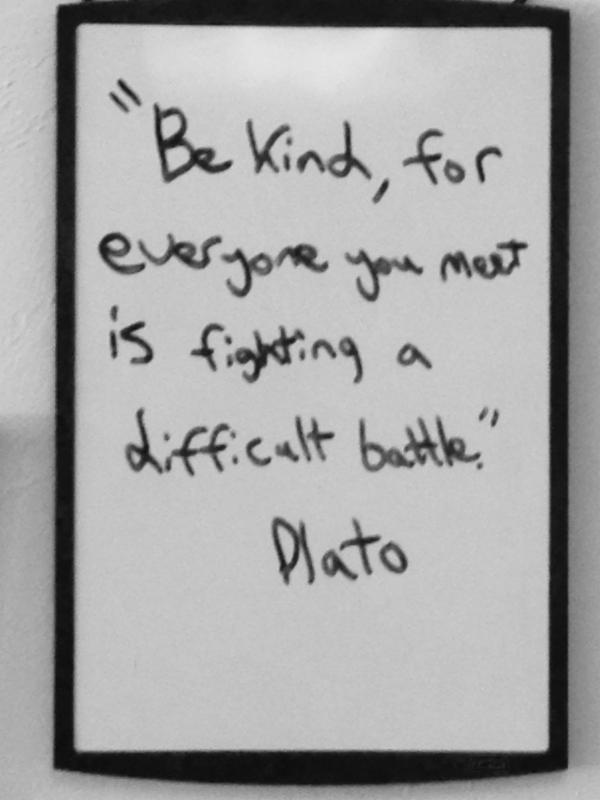 "Be Kind, for
everyone you meet
is fighting a
difficult battle."
Plato